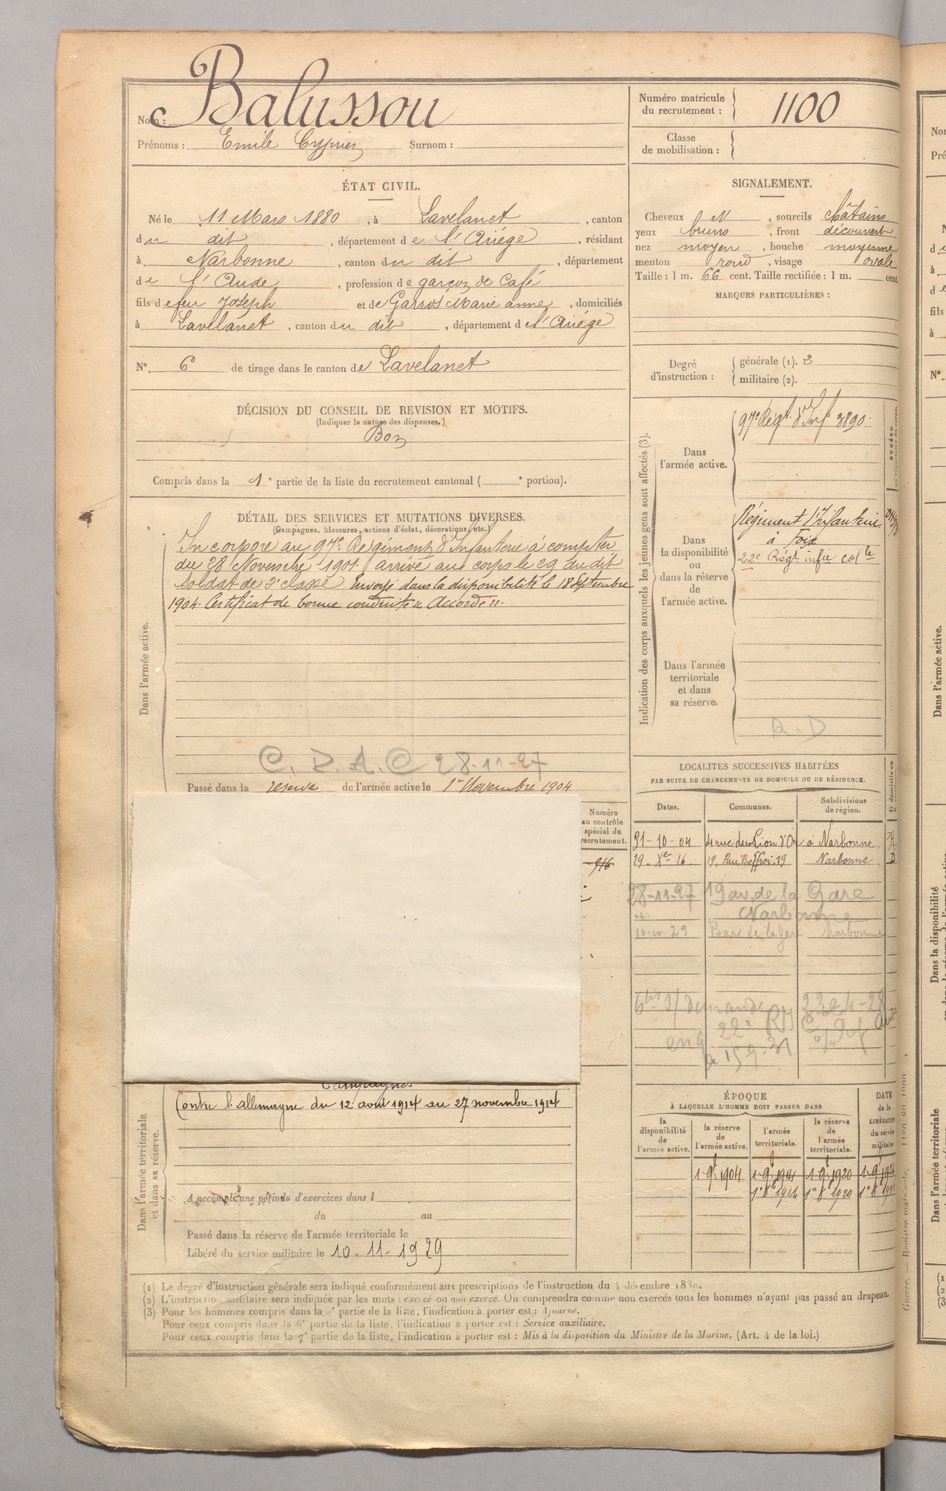 Nom : Balussou
Prénoms : Emile Cyprien Surnom :
Numéro matricule du recrutement : 1100
Classe de mobilisation :
ÉTAT CIVIL.
Né le 11 Mars 1880, à Lavelanet, canton
du dit, département de l'Ariége, résidant
à Narbonne, canton du dit, département
de l'Aude, profession de garçon de Café
fils de feu Joseph et de Garros Marie anne, domiciliés
à Lavelanet, canton du dit, département de l'Ariége
N° 6 de tirage dans le canton de Lavelanet
SIGNALEMENT.
Cheveux N, sourcils châtains
yeux bruns, front découvert
nez moyen, bouche moyenne
menton rond, visage ovale
Taille : 1 m. 66 cent. Taille rectifiée : 1 m. cent.
MARQUES PARTICULIÈRES :
Degré d'instruction : générale (1). 3
militaire (2).
DÉCISION DU CONSEIL DE REVISION ET MOTIFS.
(Indiquer la nature des dispenses.)
Bon
Compris dans la 1e partie de la liste du recrutement cantonal ( e portion).
DÉTAIL DES SERVICES ET MUTATIONS DIVERSES.
(Campagnes, blessures, actions d'éclat, décorations, etc.)
Incorporé au 97e Régiment d'Infanterie à compter
du 28 Novembre 1901 arrivé au corps le 29 du dit
Soldat de 2e classe Envoyé dans la disponibilité le 18 Septembre
1904. Certificat de bonne conduite "Accordé".
Dans l'armée active.
C. D. A. C 28-11-27
Passé dans la réserve de l'armée active le 1er Novembre 1904
Numéro
au contrôle
spécial du
recrutement.
916
Indication des corps auxquels les jeunes gens sont affectés (3).
Dans l'armée active.
97e Régt d'Inf 3890.
Dans la disponibilité ou dans la réserve de l'armée active.
Régiment d'Infanterie
à Foix
22e Régt infie colle
Dans l'armée territoriale et dans sa réserve.
R. D
LOCALITES SUCCESSIVES HABITÉES
PAR SUITE DE CHANGEMENTS DE DOMICILE OU DE RÉSIDENCE.
Dates. Communes. Subdivisions de région.
31-10-04 4 rue du Lion d'Or à Narbonne R
29 Xe 16 19, Rue Beffroi.19 Narbonne D
28-11-27 19 av. de la Gare
Narbonne
Campagnes
Contre l'allemagne du 12 août 1914 au 27 novembre 1914
Dans l'armée territoriale et dans sa réserve.
A accompli une période d'exercices dans l
du au
Passé dans la réserve de l'armée territoriale le
Libéré du service militaire le 10-11-1929
ÉPOQUE
À LAQUELLE L'HOMME DOIT PASSER DANS
la disponibilité de l'armée active. la réserve de l'armée active. l'armée territoriale. la réserve de l'armée territoriale. DATE de la LIBÉRATION du service militaire
(1) Le degré d'instruction générale sera indiqué conformément aux prescriptions de l'instruction du 4 décembre 1889.
(2) L'instruction militaire sera indiquée par les mots : exercé ou non exercé. On comprendra comme non exercés tous les hommes n'ayant pas passé au drapeau.
(3) Pour les hommes compris dans la 2e partie de la liste, l'indication à porter est : Ajourné.
Pour ceux compris dans la 6e partie de la liste, l'indication à porter est : Service auxiliaire.
Pour ceux compris dans la 7e partie de la liste, l'indication à porter est : Mis à la disposition du Ministre de la Marine. (Art. 4 de la loi.)